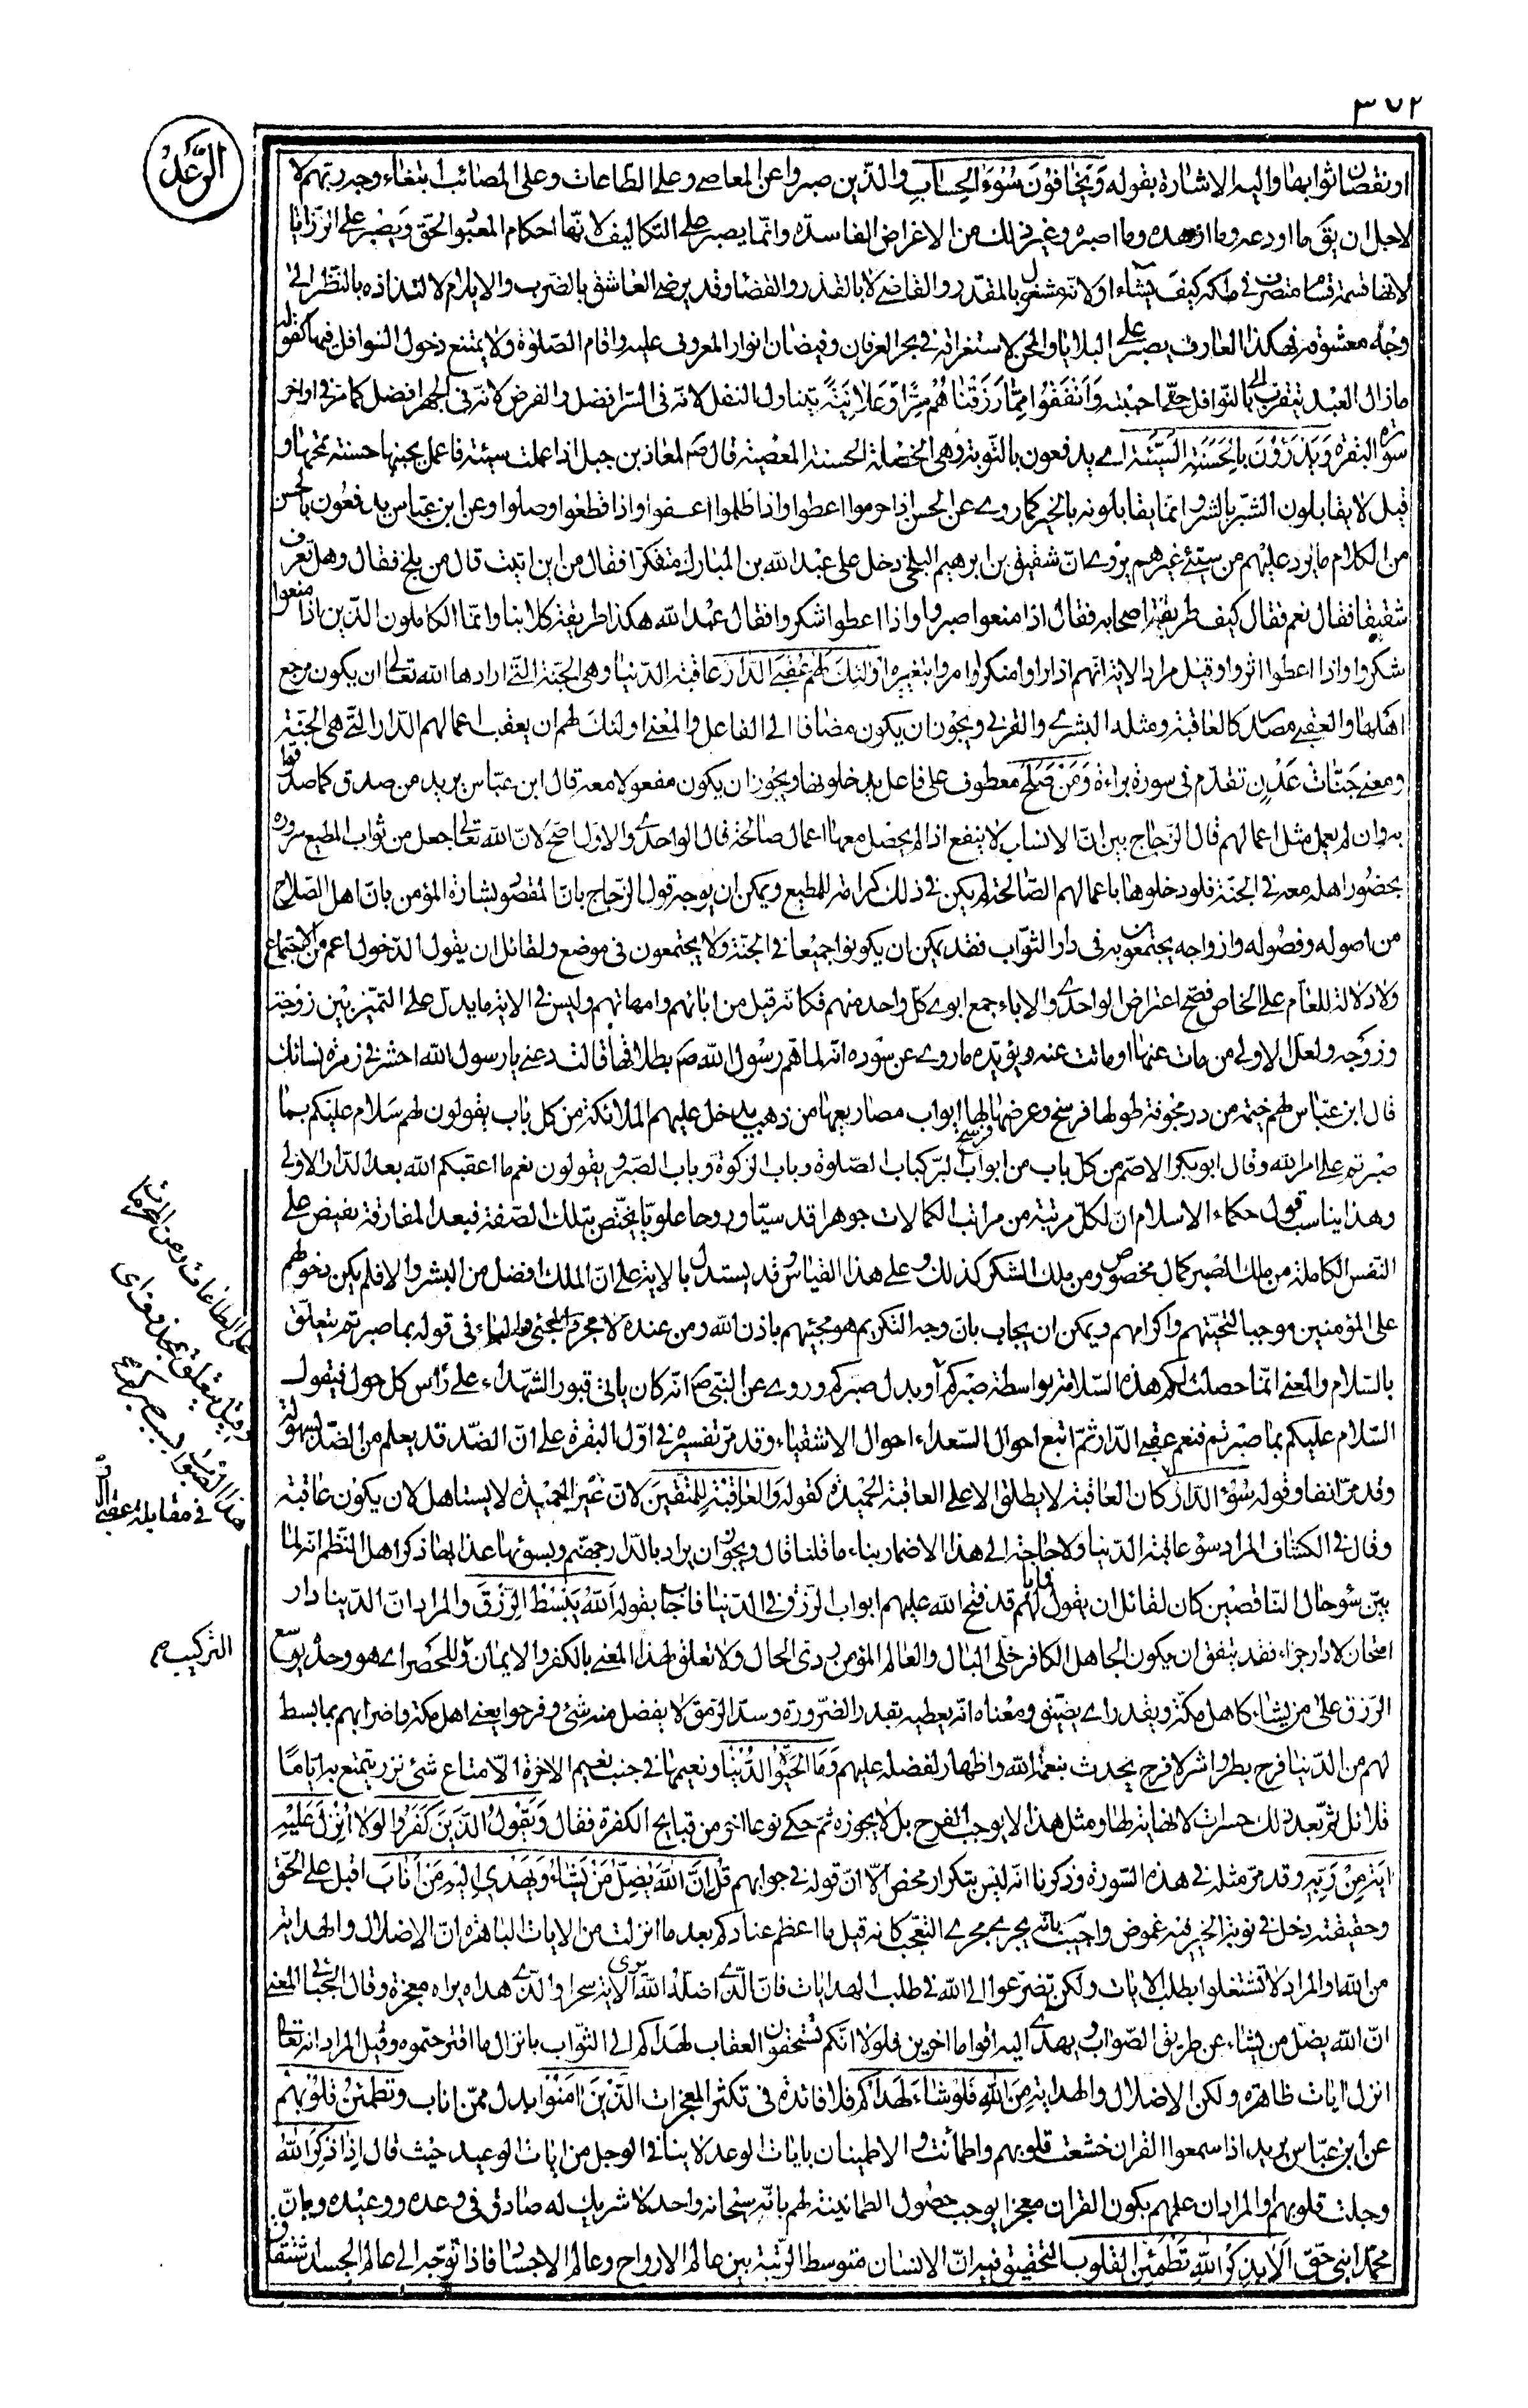 ٣٧٢
الرعد
او نقصان ثوابها واليه الاشارة بقوله وَيَخافُونَ سُوءَ الحِسابِ والّذين صبروا عن المعاصى وعلى الطاعات وعلى المصائب ابتغاء وجه ربّهم لا
لاجل ان يقال ما اودعه وما ازهده وما اصبره وغير ذلك من الاغراض الفاسدة وانّما يصبر على التكاليف لانّها احكام المعبود الحق ويصبر على الرزايا
لانها قسمة قسّام متصرف فى ملكه كيف يشاء او لانه مشغول بالمقدّر والقاضى لا بالقدر والقضاء وقد يرضى العاشق بالضرب والايلام لالتذاذه بالنظر الى
وجه معشوقه فهكذا العارف يصبر على البلايا والمحن لاستغراقه فى بحر العرفان وفيضان انوار المعروف عليه واقام الصّلوة ولا يمتنع دخول النوافل فيها كقوله
ما زال العبد يتقرب الى بالنوافل حتى احببته وَاَنْفَقُوا مِمَّا رَزَقْناهُمْ سِرًّا وَعَلانِيَةً يتناول النفل لانه فى السّر افضل والفرض لانه فى الجهر افضل كما مر فى اواخر
سورة البقرة وَيَدْرَؤُنَ بِالحَسَنَةِ السَّيِّئَةَ اى يدفعون بالتوبة وهى الخصلة الحسنة المعصية قال صم لمعاذ بن جبل اذا عملت سيئة فاعمل بجنبها حسنة تمحها و
قيل لا يقابلون الشّر بالشر وانما يقابلونه بالخير كما روى عن الحسن اذا حرموا اعطوا واذا ظلموا عفوا واذا قطعوا وصلوا وعن ابن عباس يدفعون بالحسن
من الكلام ما يرد عليهم من سيّئ غيرهم يروى ان شقيق بن ابرهيم البلخى دخل على عبد الله بن المبارك متفكرا فقال من اين اتيت قال من بلخ فقال وهل تعرف
شقيقا فقال نعم فقال كيف طريقة اصحابه فقال اذا منعوا صبروا واذا اعطوا شكروا فقال عبد الله هكذا طريقة كلابنا وانما الكاملون الذين اذا منعوا
شكروا واذا اعطوا اثروا وقيل مراد الاية انهم اذا راوا منكرا امروا بتغييره اُولئِكَ لَهُمْ عُقْبَى الدّارِ عاقبة الدّنيا وهى الجنة التى ارادها الله تعالى ان يكون مرجع
اهلها والعقبى مصدر كالعاقبة ومثله البشرى والقربى ويجوز ان يكون مضافا الى الفاعل والمعنى اولئك لهم ان يعقب اعمالهم الدّار التى هى الجنّة
ومعنى جَنّاتُ عَدْنٍ تقدّم فى سورة براءة وَمَنْ صَلَحَ معطوف على فاعل يدخلونها ويجوز ان يكون مفعولا معه قال ابن عبّاس يريد من صدق كما صدقوا
به وان لم يعمل مثل اعمالهم قال الزجاج بين انّ الانساب لا ينفع اذا لم يحصل معها اعمال صالحة قال الواحدى والاول اصح لانّ الله تعالى جعل من ثواب المطيع سروره
بحضور اهله معه فى الجنّة فلو دخلوها باعمالهم الصّالحة لم يكن فى ذلك كرامة للمطيع ويمكن ان يوجه قول الزجاج بانّ المقصود بشارة المؤمن بان اهل الصّلاح
من اصوله وفصوله وازواجه يجتمعون به فى دار الثواب فقد يمكن ان يكونوا جميعا فى الجنّة ولا يجتمعون فى موضع ولقائل ان يقول الدخول اعم من الاجتماع
ولا دلالة للعام على الخاص فصحّ اعتراض الواحدى والاباء جمع ابوى كل واحد منهم فكانه قيل من ابائهم وامهاتهم وليس فى الاية ما يدل على التمييز بين زوجة
وزوجة ولعل الاولى من مات عنها او ماتت عنه ويؤيده ما روى عن سودة انه لما هم رسول الله صم بطلاقها قالت دعنى يا رسول الله احشر فى زمرة نسائك
قال ابن عبّاس لهم خيمة من در مجوفة طولها فرسخ وعرضها فرسخ لها ابواب مصاريعها من ذهب يدخل عليهم الملائكة من كل باب يقولون لهم سَلامٌ عَلَيْكُمْ بِما
صبرتم على امر الله وقال ابو بكر الاصم من كل باب من ابواب البرّ كباب الصّلوة وباب الزكوة وباب الصّبر ويقولون نعم ما اعقبكم الله بعد الدّار الاولى
وهذا يناسب قول حكماء الاسلام انّ لكلّ مرتبة من مراتب الكمالات جوهرا قدسيّا وروحا علويّا يختص بتلك الصّفة فبعد المفارقة يفيض على
النفس الكاملة من ملك الصبر كمال مخصوص ومن ملك الشكر كذلك وعلى هذا القياس وقد يستدل بالاية على انّ الملك افضل من البشر والا فلم يكن دخولهم
على المؤمنين موجبا لتحيّتهم واكرامهم ويمكن ان يجاب بان وجه التكريم هو مجيئهم باذن الله ومن عنده لا مجرد المجئ والباء فى قوله بما صبرتم يتعلق
بالسّلام والمعنى انّما حصلت لكم هذه السّلامة بواسطة صبركم او بدل صبركم وروى عن النبى صم انه كان ياتى قبور الشهداء على رأس كل حول فيقول
السّلام عليكم بما صبرتم فنعم عقبى الدّار ثم اتبع احوال السّعداء احوال الاشقياء وقد مرّ تفسيره فى اوّل البقرة على انّ الضّد قد يعلم من الضد بسهولة
وقد مرّ انفا وقوله سُوءُ الدّارِ كان العاقبة لا يطلق الا على العاقبة الحميدة كقوله وَالعاقِبَةُ لِلْمُتَّقِينَ لانّ غير الحميدة لا يستاهل لان يكون عاقبة
وقال فى الكشّاف المراد سوء عاقبة الدّنيا ولا حاجة الى هذا الاضمار بناء ما قلنا قال ويجوز ان يراد بالدّار جهنّم وبسوئها عذابها ذكر اهل النّظم انّه لمّا
بيّن سوء حال الناقضين كان لقائل ان يقول ما بالهم قد فتح الله عليهم ابواب الرّزق فى الدّنيا فاجاب بقوله اَللّهُ يَبْسُطُ الرِّزْقَ والمراد انّ الدّنيا دار
امتحان لا دار جزاء فقد يتفق ان يكون الجاهل الكافر خلى البال والعالم المؤمن ردى الحال ولا تعلق لهذا المعنى بالكفر والايمان وللحصر اى هو وحده يوسّع
الرّزق على من يشاء كاهل مكّة ويقدر اى يضيّق ومعناه انّه يعطيه بقدر الضّرورة وسدّ الرّمق لا يفضل منه شئ وفرحوا يعنى اهل مكة واضرابهم بما بسط
لهم من الدّنيا فرح بطر واشر لا فرح يحدث بنعمة الله واظهار لفضله عليهم وَمَا الحَيوةُ الدُّنْيا ونعيمها فى جنب نعيم الاخرة الّا متاع شئ نزر يتمتع به ايّاما
قلائل ثم بعد ذلك حسرات لا نهاية لها ومثل هذا لا يوجب الفرح بل لا يجوزه ثم حكى نوعا اخر من قبايح الكفرة فقال وَيَقُولُ الَّذِينَ كَفَرُوا لَوْلا اُنْزِلَ عَلَيْهِ
ايَةٌ مِنْ رَبِّهِ وقد مرّ مثله فى هذه السّورة وذكرنا انّه ليس بتكرار محض الّا انّ قوله فى جوابهم قُلْ اِنَّ اللهَ يُضِلُّ مَنْ يَشاءُ وَيَهْدِى اِلَيْهِ مَنْ اَنابَ اقبل على الحقّ
وحقيقته دخل فى نوبة الخير فيه غموض واجيب بانه يجرى مجرى التعجّب كانه قيل ما اعظم عنادكم بعد ما انزلت من الايات الباهرة انّ الاضلال والهداية
من الله والمراد لا تشتغلوا بطلب الايات ولكن تضرّعوا الى الله فى طلب الهدايات فانّ الّذى اضلّه الله يرى الاية سحرا والّذى هداه يراه معجزة وقال الجبّائى المعنى
انّ الله يضلّ من يشاء عن طريق الصّواب ويهدى اليه اقواما اخرين فلولا انّكم تستحقون العقاب لهداكم الى الثّواب بانزال ما اقترحتموه وقيل المراد انه تعالى
انزل ايات ظاهرة ولكن الاضلال والهداية مِنَ اللهِ فَلَوْ شاءَ لَهَداكُمْ فلا فائدة فى تكثر المعجزات اَلَّذِينَ امَنُوا بدل ممّن اناب وَتَطْمَئِنُّ قُلُوبُهُمْ
عن ابن عبّاس يريد اذا سمعوا القران خشعت قلوبهم واطمأنت والاطمينان بايات الوعد لا ينافى الوجل من ايات الوعيد حيث قال اِذا ذُكِرَ اللهُ
وجلت قلوبهم والمراد ان علمهم بكون القران معجزا يوجب حصول الطمانينة لهم بانّه سبحانه واحد لا شريك له صادق فى وعده ووعيده وبانّ
محمّدا نبى حقّ اَلا بِذِكْرِ اللهِ تَطْمَئِنُّ القُلُوبُ التحقيق فيه انّ الانسان متوسط الرّتبة بين عالم الارواح وعالم الاجساد فاذا توجّه الى عالم الجسد اشتاق
وقيل يتعلق بمحذوف اى
هذا الثواب بسبب صبركم
فى مقابلة عقبى الدار
التركيب صم